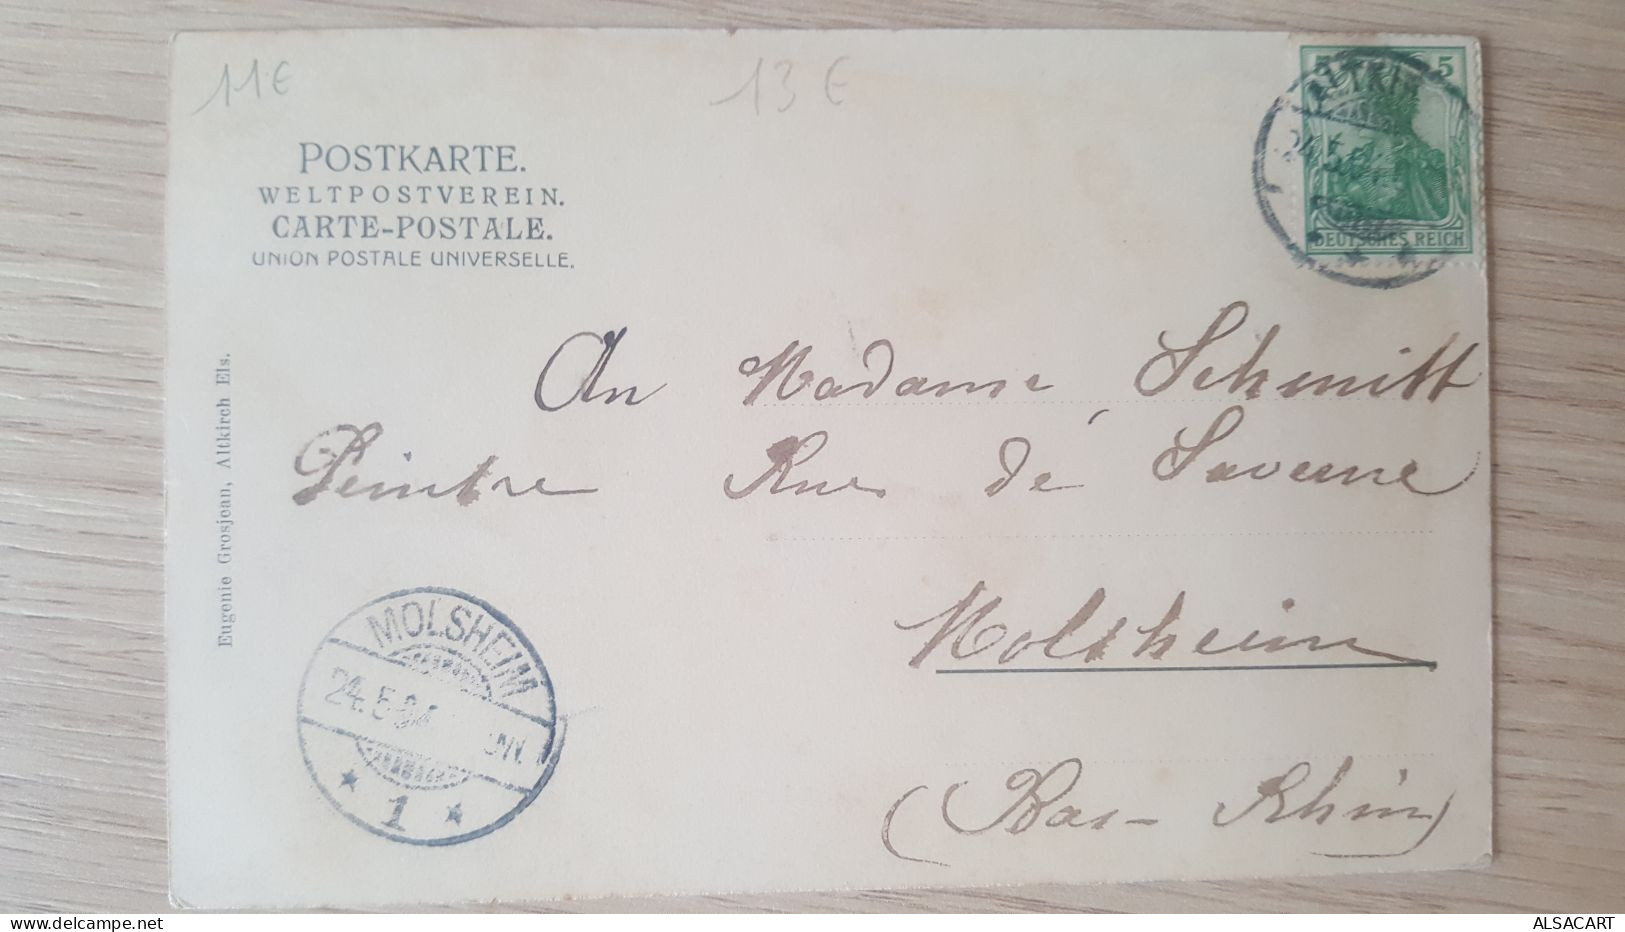 11€
13€
POSTKARTE.
WELTPOSTVEREIN.
CARTE-POSTALE.
UNION POSTALE UNIVERSELLE.
5 5
ALTKIR
24.5.
DEUTSCHES REICH
An Madame Schmitt
Peintre Rue de Saverne
Molsheim
(Bas-Rhin)
Eugenie Grosjean, Altkirch Els.
MOLSHEIM
24.5.04
1
ALSACART